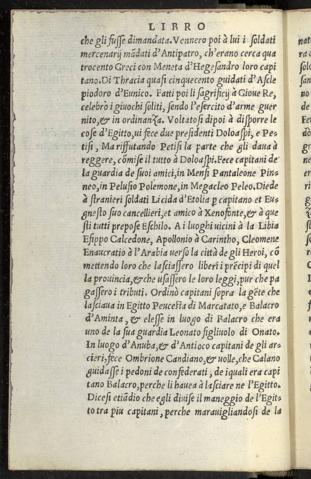 LIBRO
che gli fusse dimandata. Vennero poi à lui i soldati
mercenarij mādati d'Antipatro, ch'erano cerca qua
trocento Greci con Meneta d'Hegesandro loro capi
tano. Di Thracia quasi cinquecento guidati d'Ascle
piodoro d'Eunico. Fatti poi li sagrificij à Gioue Re,
celebrò i giuochi soliti, sendo l'esercito d'arme guer
nito, & in ordinanza. Voltatosi dipoi à disporre le
cose d'Egitto, ui fece due presidenti Doloaspi, e Pe-
tisi, Ma riffutando Petisi la parte che gli daua à
reggere, cōmise il tutto à Doloaspi. Fece capitani de
la guardia de suoi amici, in Mensi Pantaleone Pin-
neo, in Pelusio Polemone, in Megacleo Peleo. Diede
à stranieri soldati Licida d'Etolia p capitano et Eu
gnesto suo cancellieri, et amico à Xenofonte, & à que
sti tutti prepose Eschilo. A i luoghi uicini à la Libia
Esippo Calcedone, Apollonio à Carintho, Cleomene
Enaucratio à l'Arabia uerso la città de gli Heroi, cō
mettendo loro che lasciassero liberi i prīcipi di quel
la prouincia, & che usassero le loro leggi, pur che pa
gassero i tributi. Ordinò capitani sopra la gēte che
lasciaua in Egitto Peucesta di Marcatato, e Balacro
d'Aminta, & elesse in luogo di Balacro che era
uno de la sua guardia Leonato figliuolo di Onato.
In luogo d'Anuba, & d'Antioco capitani de gli ar
cieri, fece Ombrione Candiano, & uolle, che Calano
guidasse i pedoni de confederati, de iquali era capi
tano Balacro, perche li hauea à lasciare ne l'Egitto.
Dicesi etiādio che egli diuise il maneggio de l'Egit-
to tra piu capitani, perche marauigliandosi de la